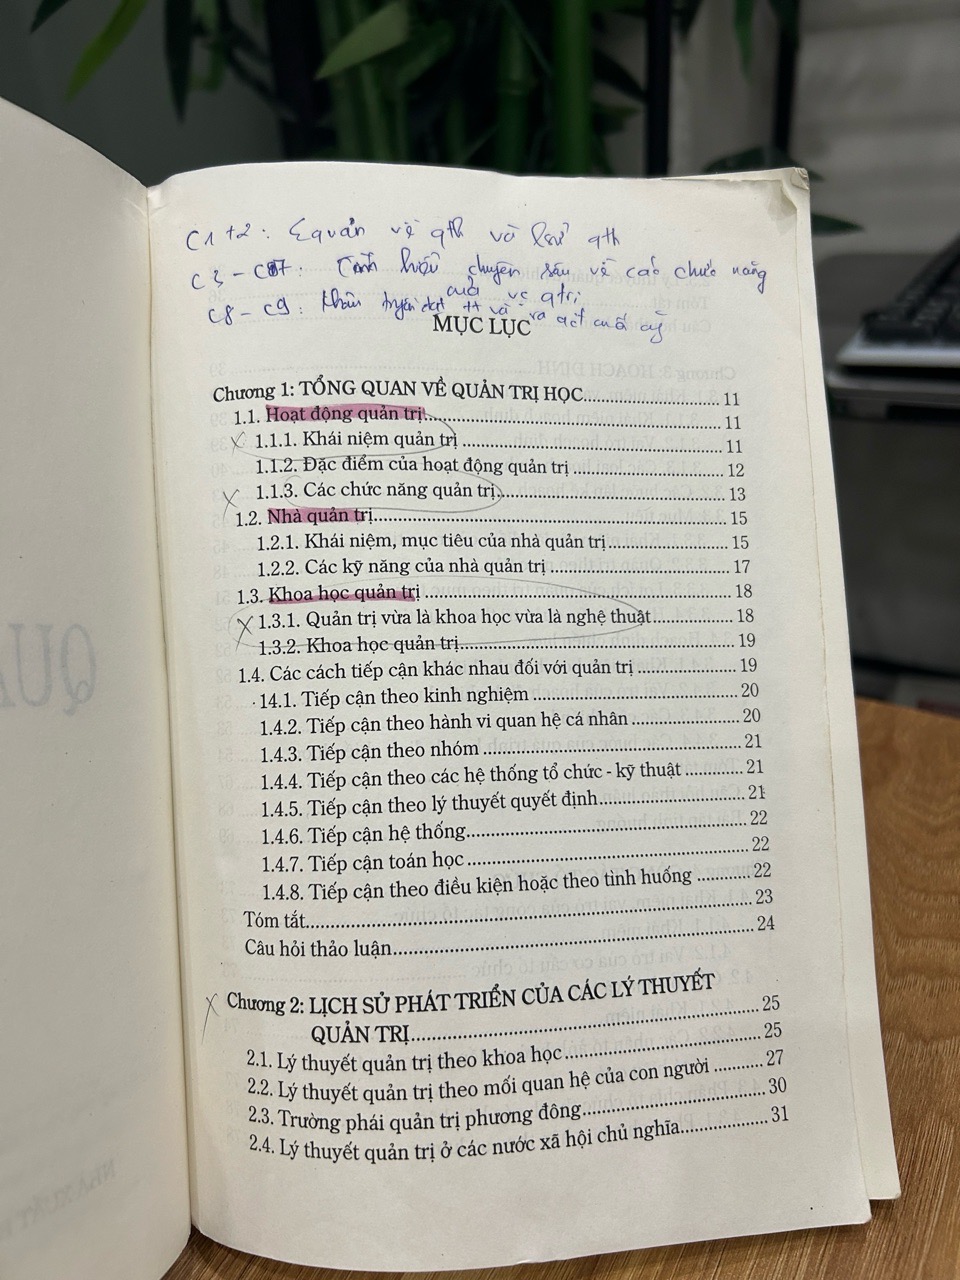 C1+2: quản về qth và lsử qth
C3 - C7: Tìm hiểu chuyên sâu về các chức năng
của qtrị
C8 - C9: truyền đạt tt và ra qđ cuối cg̀
MỤC LỤC
Chương 1: TỔNG QUAN VỀ QUẢN TRỊ HỌC.......................... 11
1.1. Hoạt động quản trị.......................... 11
1.1.1. Khái niệm quản trị .......................... 11
1.1.2. Đặc điểm của hoạt động quản trị .......................... 12
1.1.3. Các chức năng quản trị.......................... 13
1.2. Nhà quản trị.......................... 15
1.2.1. Khái niệm, mục tiêu của nhà quản trị .......................... 15
1.2.2. Các kỹ năng của nhà quản trị .......................... 17
1.3. Khoa học quản trị .......................... 18
1.3.1. Quản trị vừa là khoa học vừa là nghệ thuật.......................... 18
1.3.2. Khoa học quản trị.......................... 19
1.4. Các cách tiếp cận khác nhau đối với quản trị .......................... 19
14.1. Tiếp cận theo kinh nghiệm .......................... 20
1.4.2. Tiếp cận theo hành vi quan hệ cá nhân .......................... 20
1.4.3. Tiếp cận theo nhóm .......................... 21
1.4.4. Tiếp cận theo các hệ thống tổ chức - kỹ thuật .......................... 21
1.4.5. Tiếp cận theo lý thuyết quyết định.......................... 21
1.4.6. Tiếp cận hệ thống.......................... 22
1.4.7. Tiếp cận toán học .......................... 22
1.4.8. Tiếp cận theo điều kiện hoặc theo tình huống .......................... 22
Tóm tắt.......................... 23
Câu hỏi thảo luận.......................... 24
Chương 2: LỊCH SỬ PHÁT TRIỂN CỦA CÁC LÝ THUYẾT
QUẢN TRỊ.......................... 25
2.1. Lý thuyết quản trị theo khoa học .......................... 25
2.2. Lý thuyết quản trị theo mối quan hệ của con người .......................... 27
2.3. Trường phái quản trị phương đông.......................... 30
2.4. Lý thuyết quản trị ở các nước xã hội chủ nghĩa.......................... 31